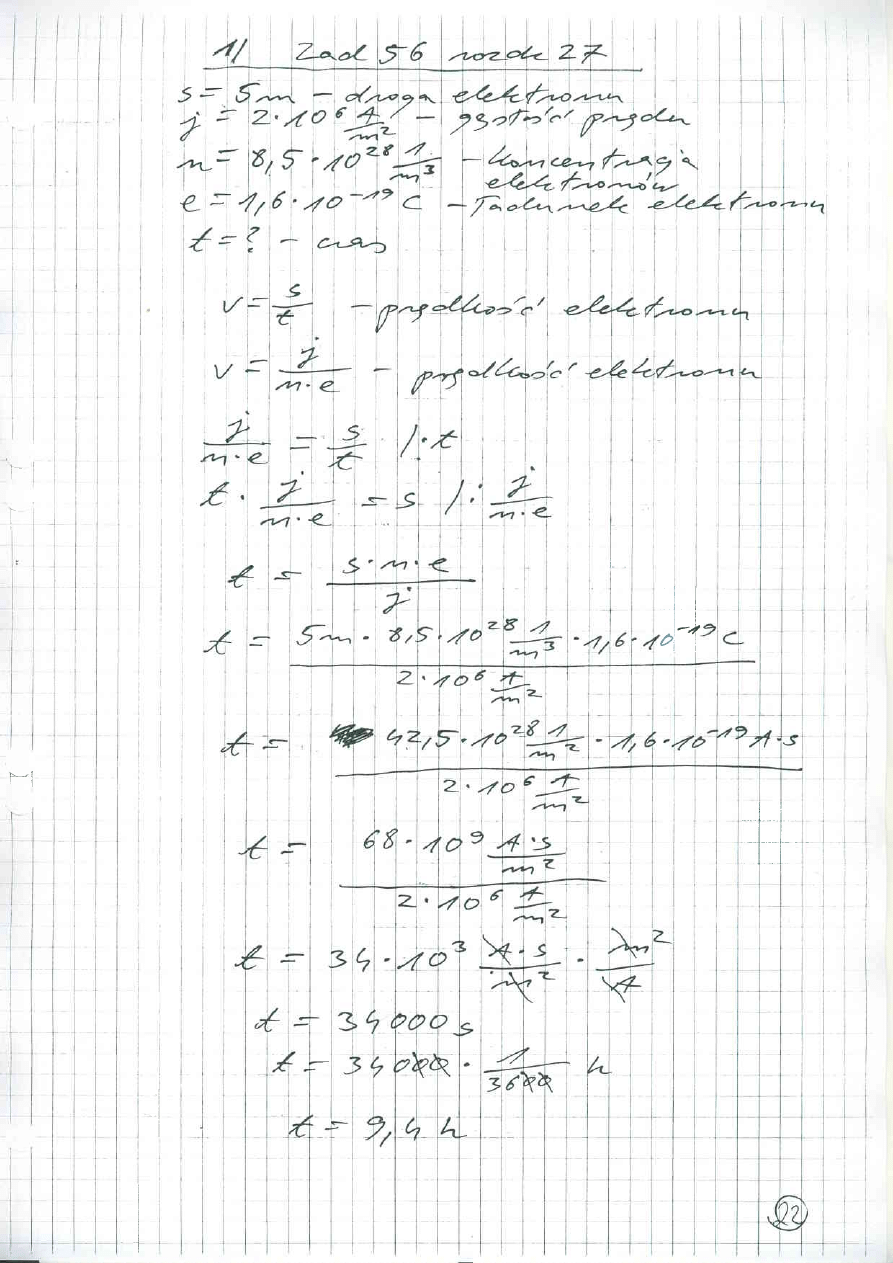 1/ Zad 56 rozdz 27
s = 5m – droga elektronu
j = 2·10⁶ A/m² – gęstość prądu
n = 8,5·10²⁸ 1/m³ – koncentracja
elektronów
e = 1,6·10⁻¹⁹ C – ładunek elektronu
t = ? – czas
v = s/t – prędkość elektronu
v = j/(n·e) – prędkość elektronu
j/(n·e) = s/t /·t
t · j/(n·e) = s /: j/(n·e)
t = (s·n·e)/j
t = (5m · 8,5·10²⁸ 1/m³ · 1,6·10⁻¹⁹ C)/(2·10⁶ A/m²)
t = (42,5·10²⁸ 1/m² · 1,6·10⁻¹⁹ A·s)/(2·10⁶ A/m²)
t = (68·10⁹ A·s/m²)/(2·10⁶ A/m²)
t = 34·10³ A·s/m² · m²/A
t = 34000 s
t = 34000 · 1/3600 h
t = 9,4 h
22